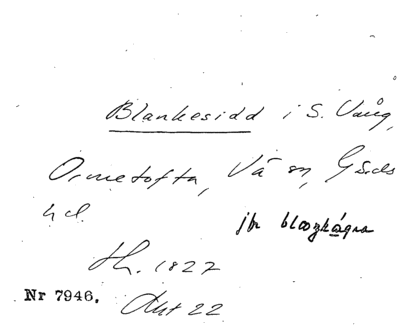 Blankesidd i S. Vång,
Ormetofta, Vå sn, Gärds
hd.
jfr
Hh. 1827
Nr 7946. Akt 22